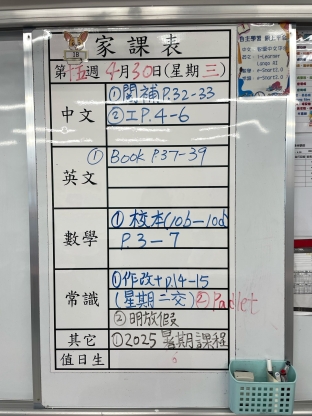 1B
家課表
第十五週 4月30日(星期三)
中文
①閱補 P.32-33
②工P.4-6
英文
① Book P.37-39
數學
① 校本(10b—10d)
P.3—7
常識
①作改+p.14-15
(星期二交) ② Padlet
③明放假
其它
①2025 暑期課程
值日生
自主學習 網上平台